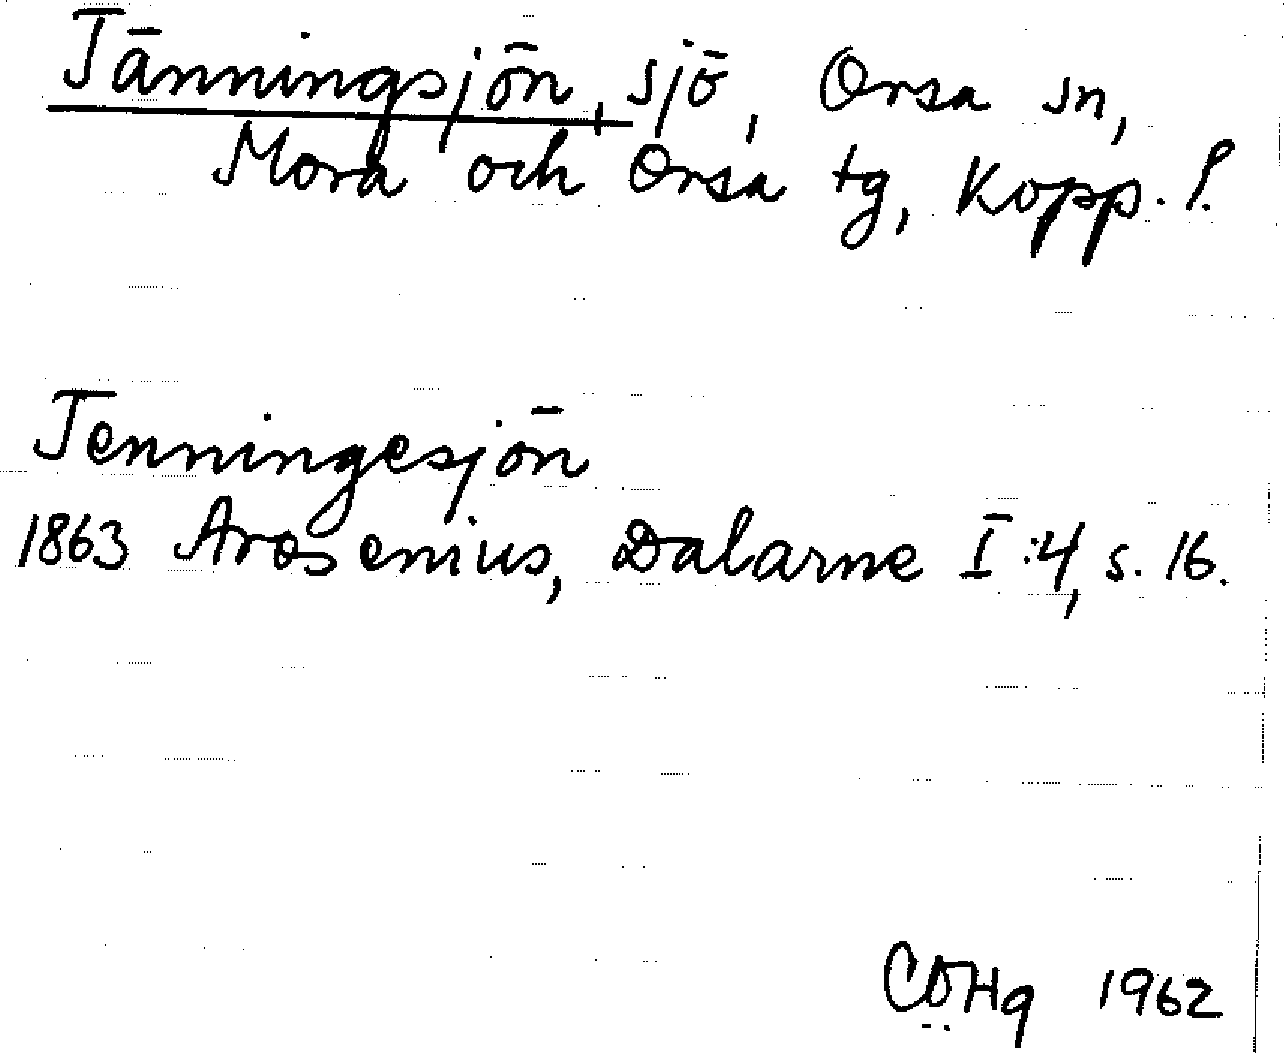 Jänningsjön, sjö, Orsa sn,
Mora och Orsa tg, Kopp. l.
Jenningesjön
1863 Arosenius, Dalarne I:4, s. 16.
CÖHg 1962